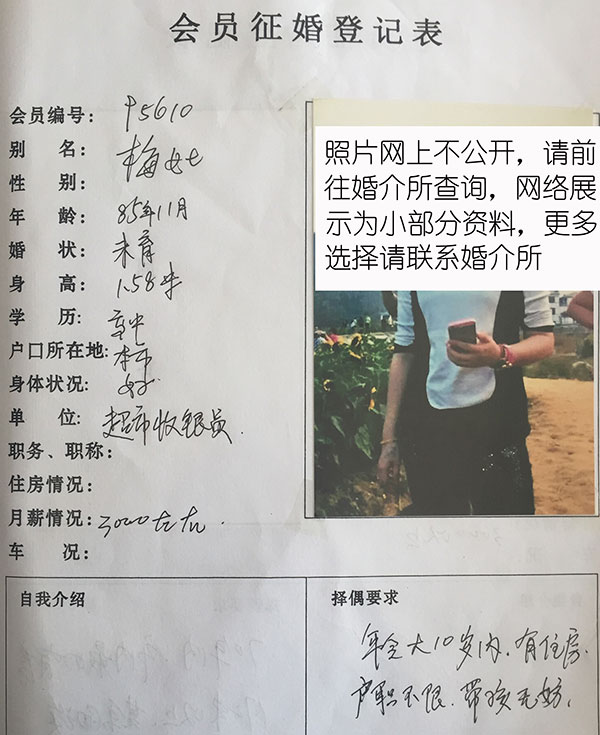 会员征婚登记表
会员编号：P5610
别 名：梅女士
性 别：
年 龄：85年11月
婚 状：未育
身 高：1.58米
学 历：高中
户口所在地：本市
身体状况：好
单 位：超市收银员
职务、职称：
住房情况：
月薪情况：3000左右.
车 况：
照片网上不公开，请前
往婚介所查询，网络展
示为小部分资料，更多
选择请联系婚介所
自我介绍
择偶要求
年令大10岁内.有住房.
户职不限.带孩无妨.